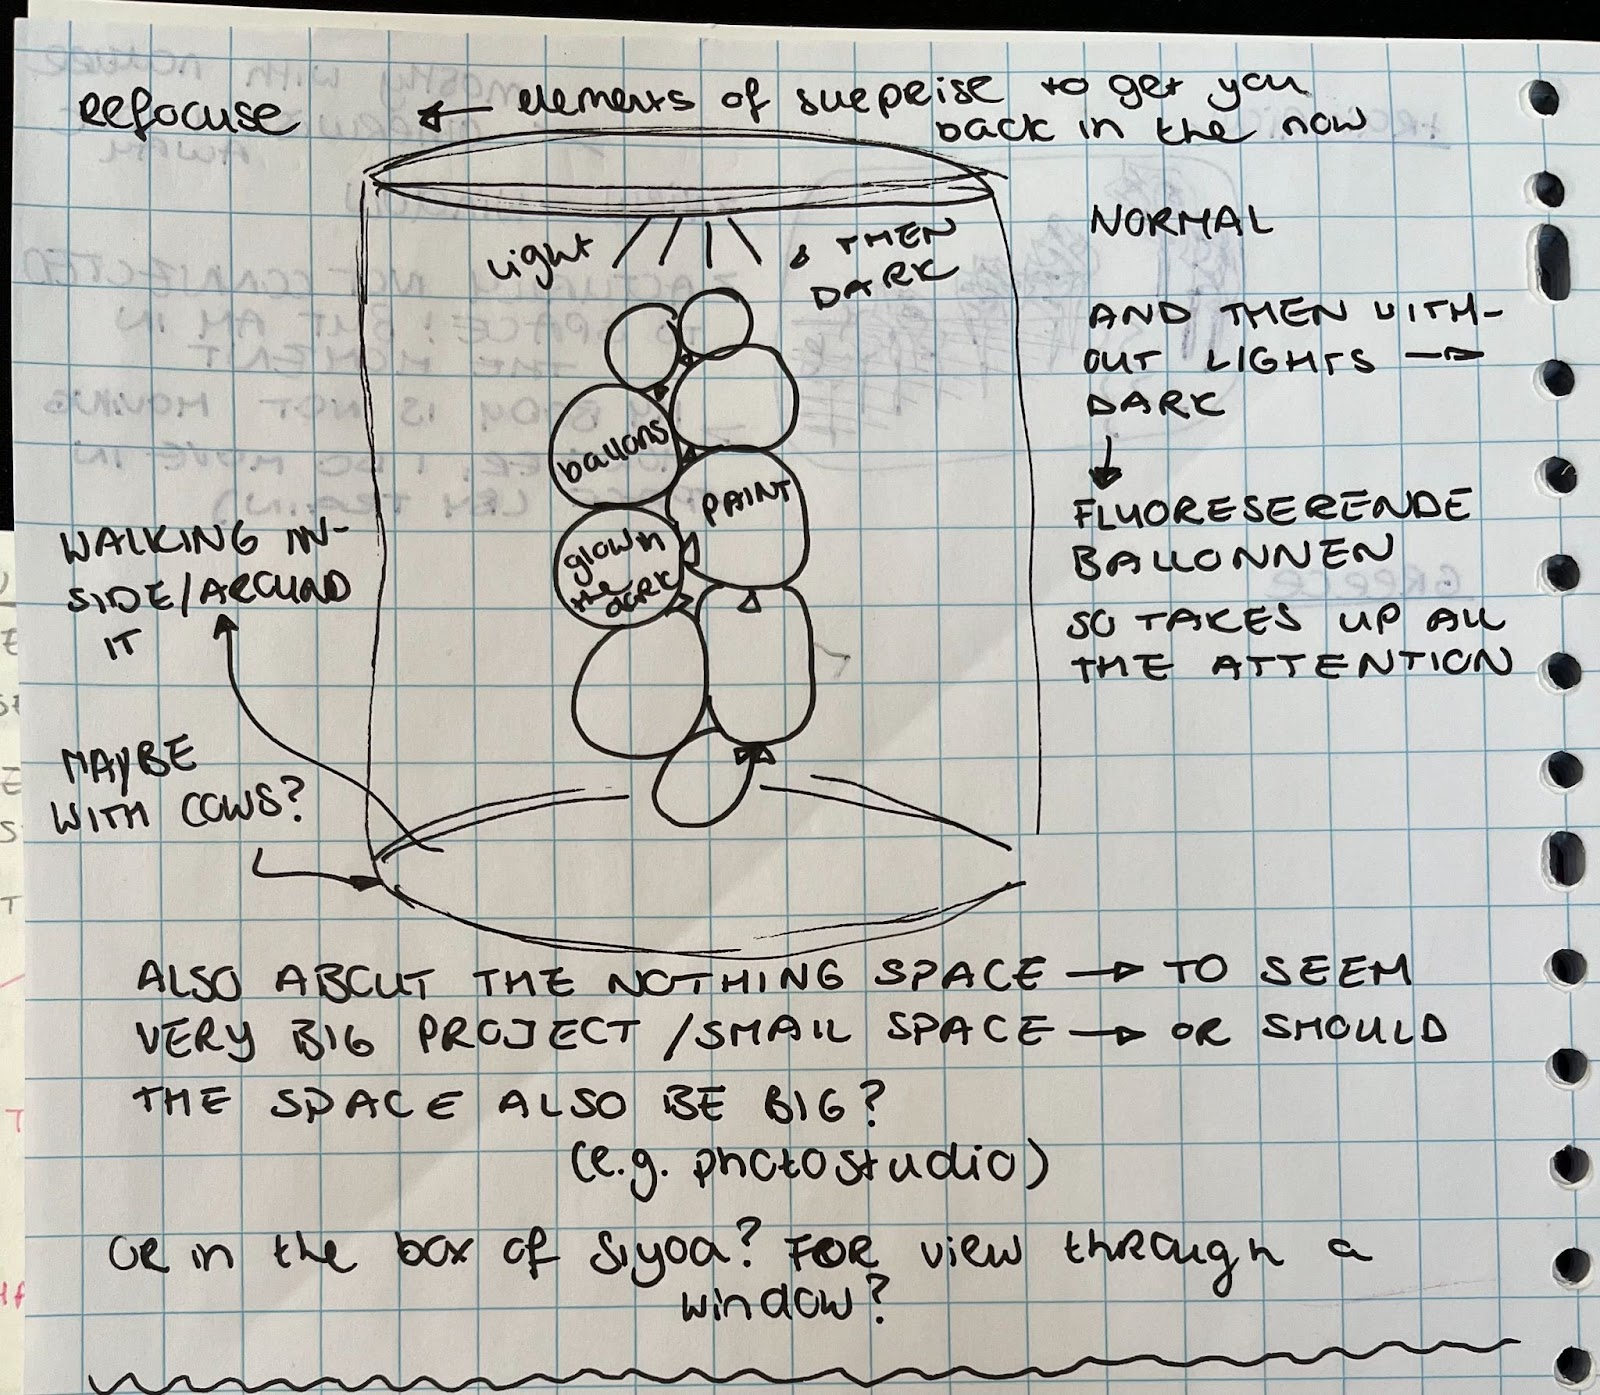 Refocuse ← elements of surprise to get you
back in the now
light
& THEN
DARK
ballons
PAINT
glow in
the
dark
NORMAL
AND THEN WITH-
OUT LIGHTS →
DARK
↓
FLUORESERENDE
BALLONNEN
SO TAKES UP ALL
THE ATTENTION
WALKING IN-
SIDE/AROUND
IT
MAYBE
WITH COWS?
ALSO ABOUT THE NOTHING SPACE → TO SEEM
VERY BIG PROJECT /SMALL SPACE → OR SHOULD
THE SPACE ALSO BE BIG?
(e.g. photostudio)
OR in the box of Siyoa? FOR view through a
window?